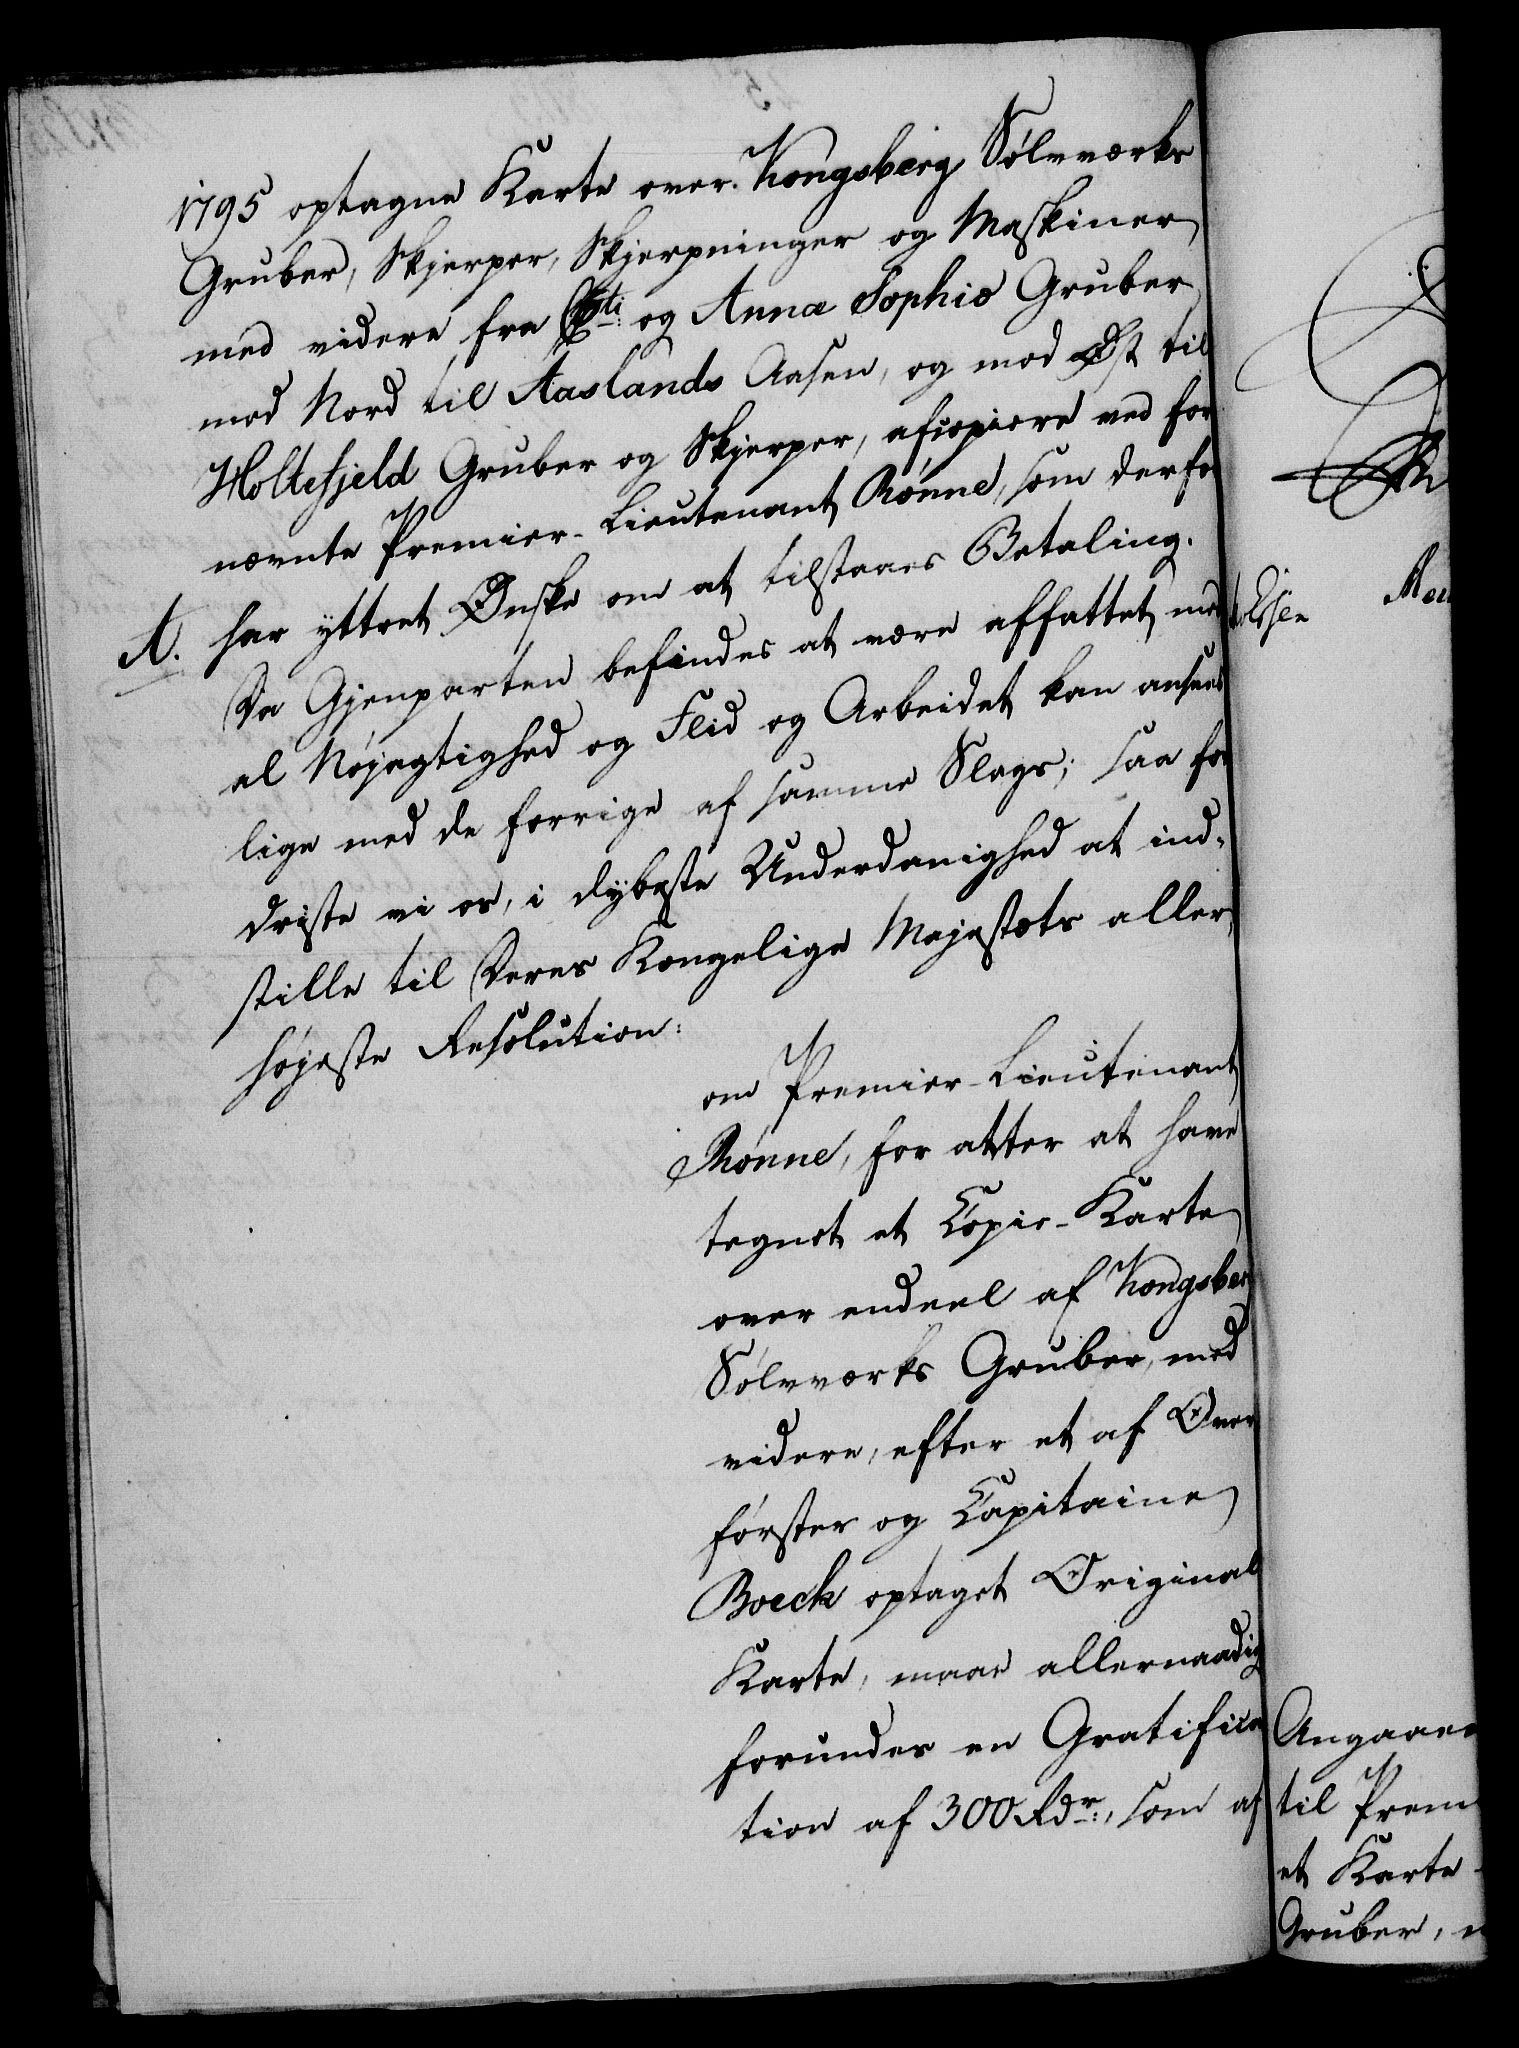 1795 optagne Karte over Kongsberg Sølvværks
Gruber, Skjerper, Skjerpninger og Maskiner
med videre fra og Anna Sophie Gruber
mod Nord til Aaslands Aasen, og mod Øst til
Holtefjeld Gruber og Skjerper, afcopiere ved for
nævnte Premier-Lieutenant Rönne, som derfo
har yttret Ønske om at tilstaaes Betaling.
A.
Da Gjenparten befindes at være affattet med
al Nøjagtighed og Flid og Arbeidet kan ansees
lige med de forrige af samme Slags; saa for
driste vi os, i dybeste Underdanighed at ind-
stille til Deres Kongelige Majestæts aller
højeste Resolution:
om Premier-Lieutenant
Rönne, for atter at have
tegnet et Copie-Karte
over endeel af Kongsber
Sølvværks Gruber, med
videre, efter et af Over
förster og Capitaine
Boeck optaget Original
Karte, maae allernaadig
forundes en Gratifica
tion af 300 Rdr:, som af
Angaaen
til Prem
et Karte
Gruber,